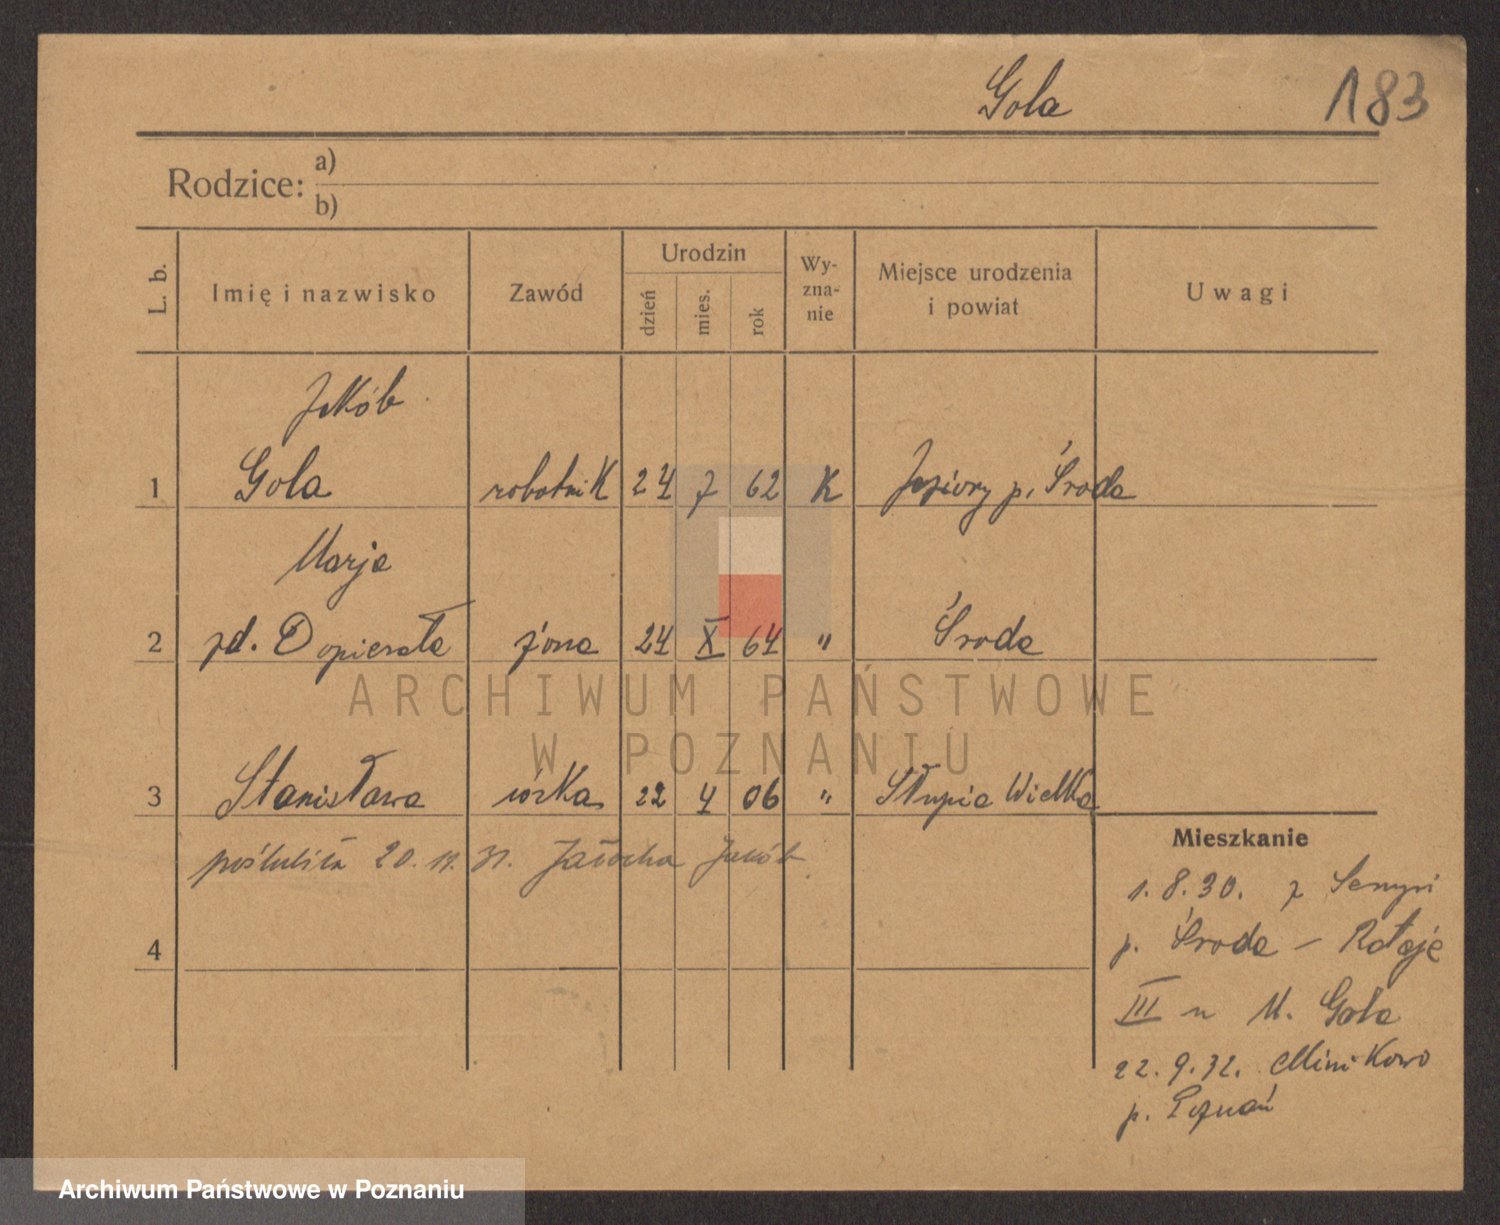 Gola
183
Rodzice: a)
b)
L. b.
Imię i nazwisko
Zawód
Urodzin
dzień
mies.
rok
Wy-
zna-
nie
Miejsce urodzenia
i powiat
Uwagi
Jakób
1 Gola robotnik 24 7 62 K Jeziory p. Środa
Marja
2 zd. Dopierała żona 24 X 64 " Środa
3 Stanisława córka 22 4 06 " Słupia Wielka
poślubiła 20. 11. 31. Jałocha Jakób
4
Mieszkanie
1. 8. 30. z
p. Środa - Rataje
III u M. Gola
22. 9. 32. Minikowo
p. Poznań
ARCHIWUM PAŃSTWOWE
W POZNANIU
Archiwum Państwowe w Poznaniu